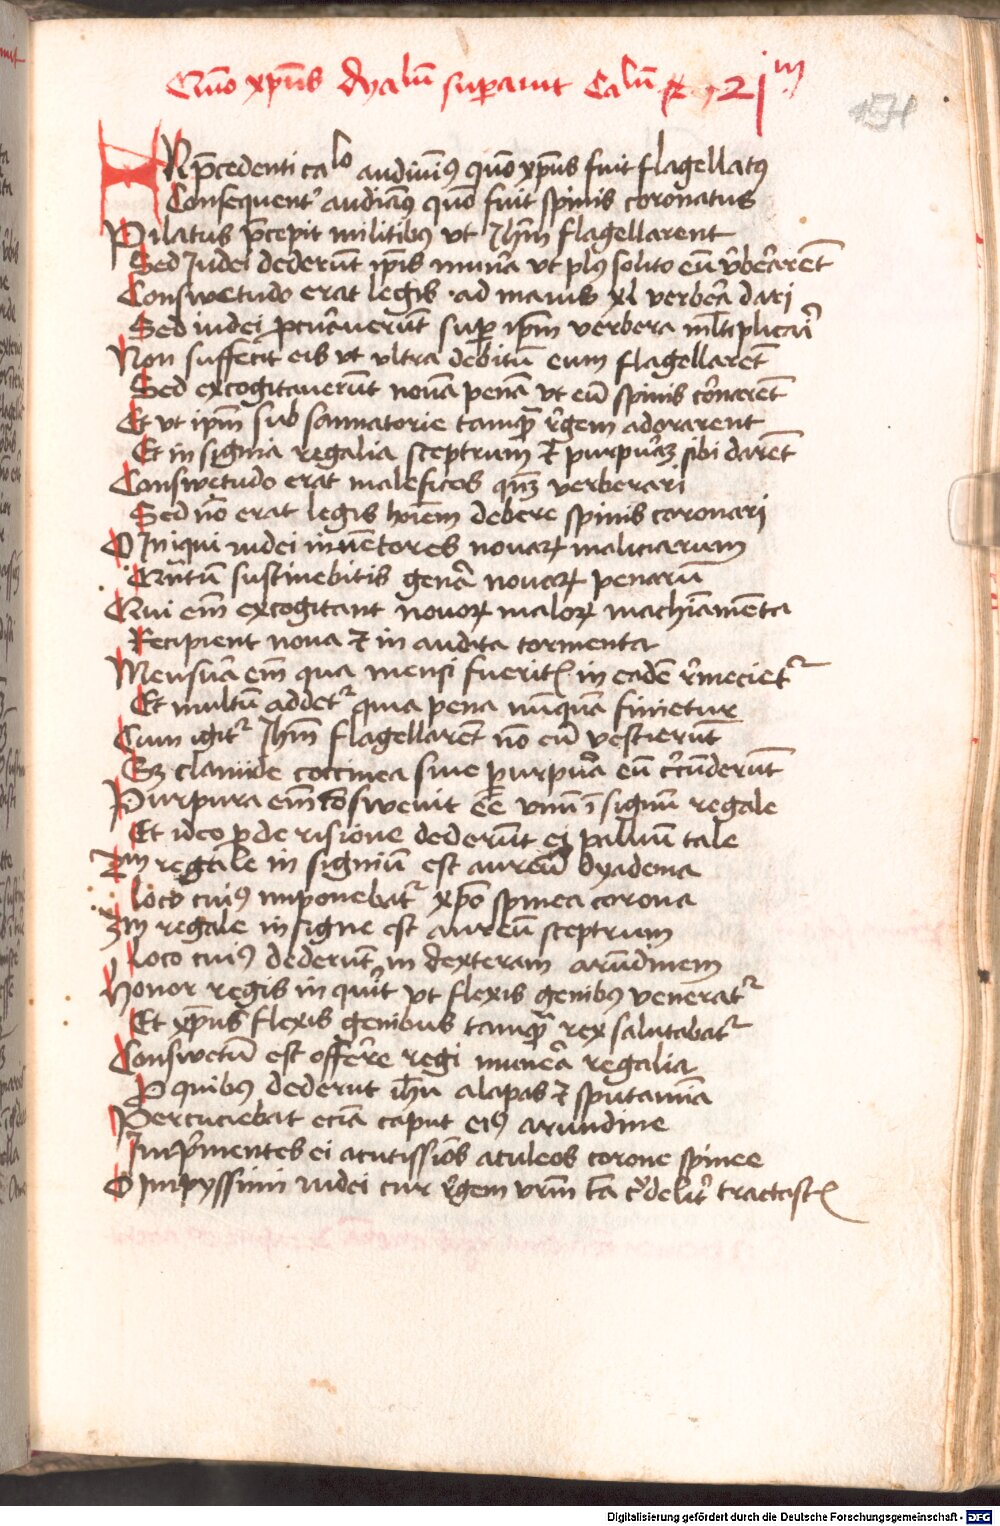 Quo xpūs dyalū suparut Calū 21m
154
IN p̄cedenti calo audiuimꝰ quō xpūs fuit flagellatꝰ
Consequent᷑ audiamꝰ quō fuit spinis coronatus
Pilatus p̄cepit militibꝰ vt Jhm̄ flagellarent
Sed Iudei dederūt ip̄is mun̄a vt plꝰ solito eū v̄berarēt
Conswetudo erat legis ad maius xl verbera dari
Sed iudei ꝓcurauerūt suꝑ ip̄m verbera ml̄tiplicari
Non suffecit eis vt vltra debitū eum flagellarēt
Sed excogitauerūt nouā penā vt eū spinis coronarēt
Et vt ip̄m sub sannatorie tamqᷓ regem adorarent
Et insignia regalia sceptrum ⁊ purpurāꝫ sibi darēt
Conswetudo erat maleficos qn̄ꝫ verberari
Sed nō erat legis hoīem debere spinis coronari
O Iniqui iudei inuētores nouaꝝ maliciarum
Quātū sustinebitis genera nouaꝝ penarū
Qui em̄ excogitant nouoꝝ maloꝝ machinamēta
Recipient noua ⁊ in audita tormenta
Mensura em̄ qua mensi fueritis in eadē remecietᷣ
Et multū addetᷣ quia pena nūquā finietur
Cum igitᷣ Jhm̄ flagellarēt nō eū vestierūt
Eꝫ clamide coccinea siue purpura eū circūderūt
Purpura em̄ conswevit eē vnū īsignū regale
Et ideo ꝓ derisione dederūt ei palliū tale
2m regale in signiū est aureū dyadema
loco cuiꝰ imponebatᷣ xp̄o spinea corona
3m regale insigne est aureū sceptrum
Loco cuiꝰ dederūt in dexteram arūdinem
Honor regis inquirit vt flexis genibꝰ veneratᷣ
Et xp̄us flexis genibus tamqᷓ rex salutabatᷣ
Conswetū est offerre regi munera regalia
Pro quibꝰ dederut ih̄u alapas ⁊ sputamīa
Percuciebat eciā caput eiꝰ arundine
Inprimentes ei acutissiōs aculeos corone spinee
O Inpyssimi iudei cur regem vr̄m tā crudelit᷑ tractastis
Digitalisierung gefördert durch die Deutsche Forschungsgemeinschaft - DFG